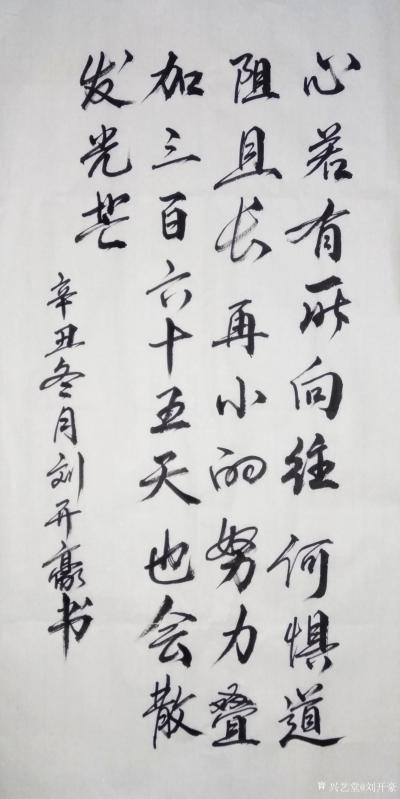 心若有所向往何惧道
阻且长再小的努力叠
加三百六十五天也会散
发光芒
辛丑冬月刘开豪书
兴艺堂@刘开豪